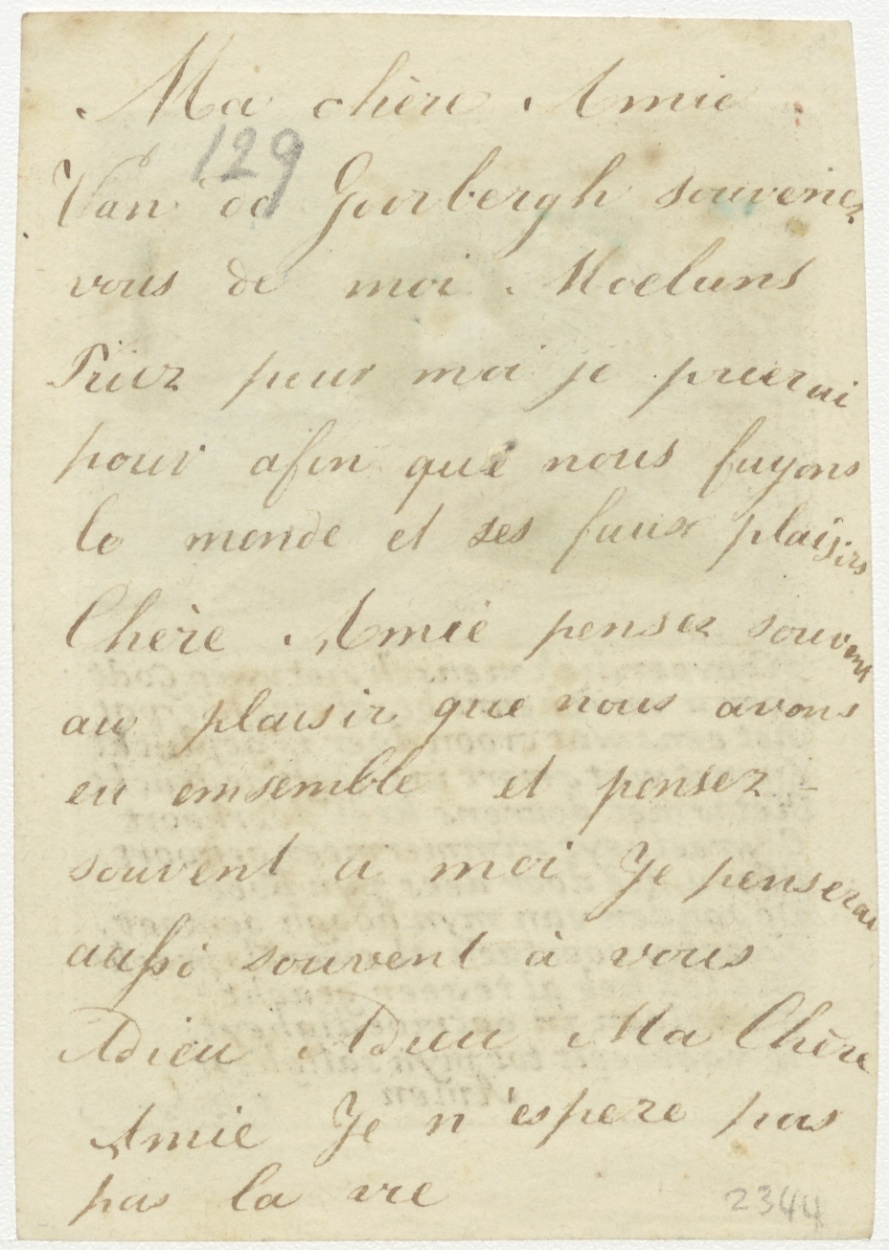 Ma chère Amie
129
Van de Goorbergh souvenez
vous de moi. Moeluns
Priez pour moi je prierai
pour afin que nous fuyons
le monde et ses faux plaisirs
Chère Amie pensez souvent
au plaisir que nous avons
eu emsemble et pensez -
souvent a moi Je penserai
aussi souvent à vous
Adieu Adieu Ma Chère
Amie Je n'espere pas
pas la vie
2344